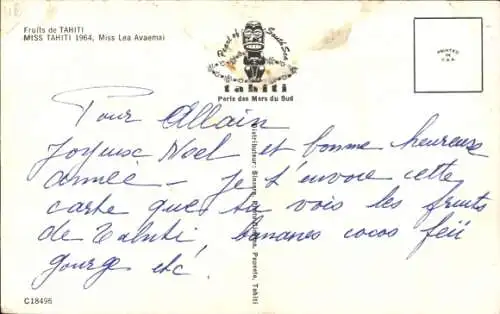 Fruits de TAHITI
MISS TAHITI 1964, Miss Lea Avaemai
Pearl of South Sea
tahiti
Perle des Mers du Sud
PRINTED
IN
U.S.A.
Pour Allain
Joyuise Noel et bonne heureuse
année - je t'envoie cette
carte que tu vois les fruits
de Tahiti, bananes cocos feii
gourge etc
Papeete, Tahiti
C18496